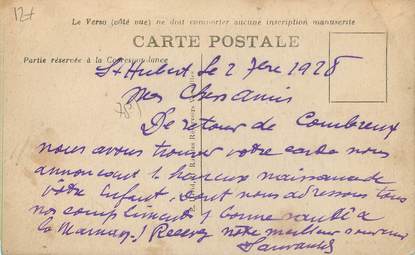 Le Verso (côté vue) ne doit comporter aucune inscription manuscrite
CARTE POSTALE
Partie réservée à la Correspondance
St Hubert le 2 7bre 1928
Mes Chers Amis
De retour de Combreux
nous avons trouver votre carte nous
annoncant l'heureux naissance de
votre Enfant. Dont nous adressons tous
nos compliment, bonne santé à
la Maman. Recevez notre meilleur souvenir